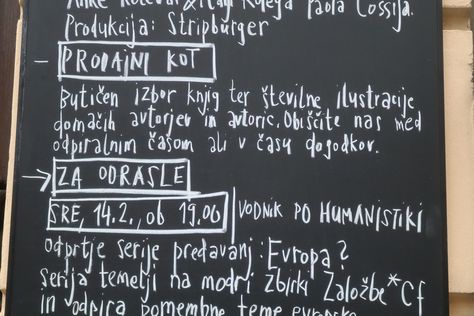 Paola Cossija.
Produkcija: Stripburger
– PRODAJNI KOT
Butičen izbor knjig ter številne ilustracije
domačih avtorjev in avtoric. Obiščite nas med
odpiralnim časom ali v času dogodkov.
→ ZA ODRASLE
SRE, 14.2., ob 19.00 | VODNIK PO HUMANISTIKI
Odprtje serije predavanj: Evropa?
Serija temelji na modri zbirki Založbe *Cf
in odpira pomembne teme evropske